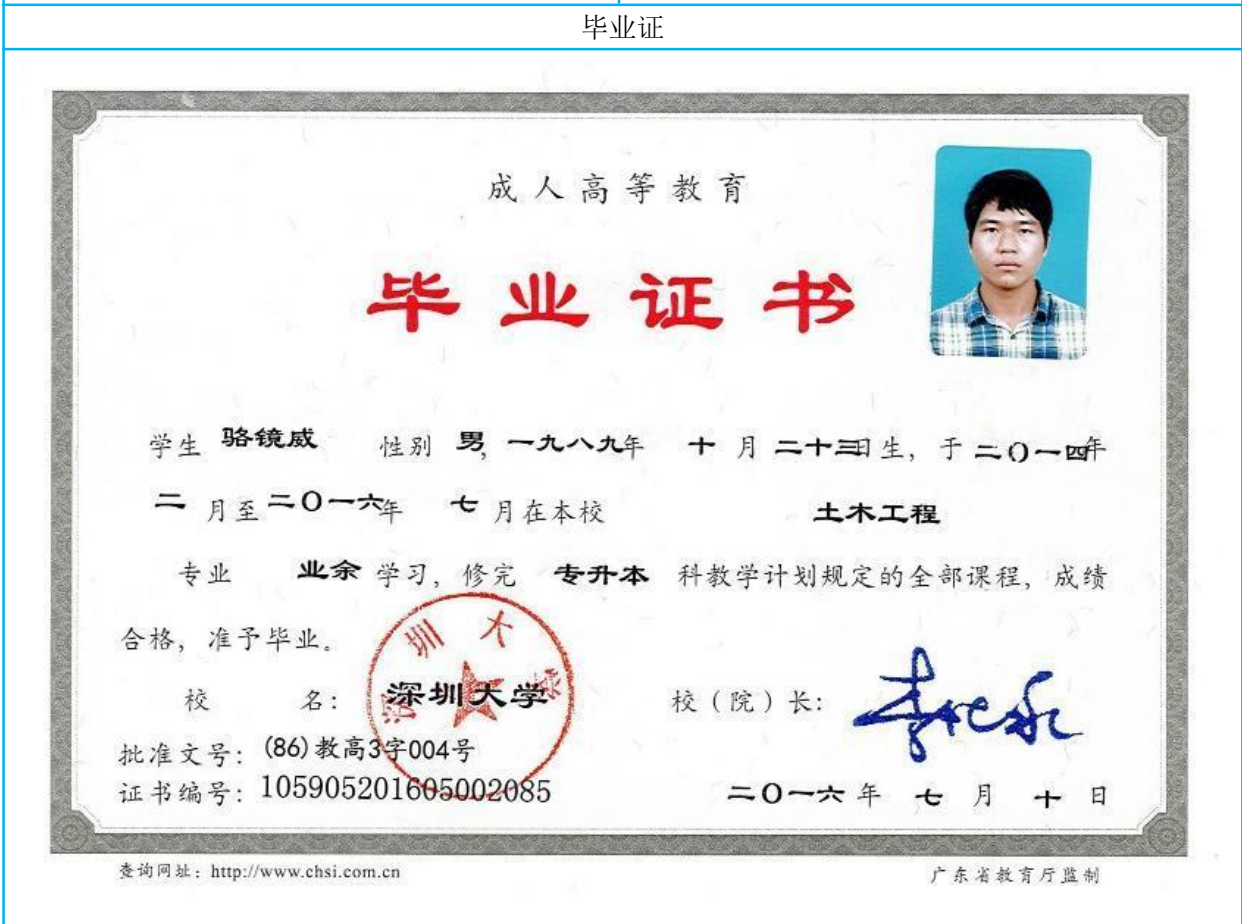 毕业证
成人高等教育
毕业证书
学生 骆镜威 性别 男, 一九八九年 十 月 二十三日生, 于 二〇一四年
二 月至 二〇一六年 七 月在本校 土木工程
专业 业余 学习, 修完 专升本 科教学计划规定的全部课程, 成绩
合格, 准予毕业。
深圳大学
校 名: 深圳大学 校(院)长: 李清泉
批准文号: (86)教高3字004号
证书编号: 105905201605002085 二〇一六 年 七 月 十 日
查询网址: http://www.chsi.com.cn 广东省教育厅监制